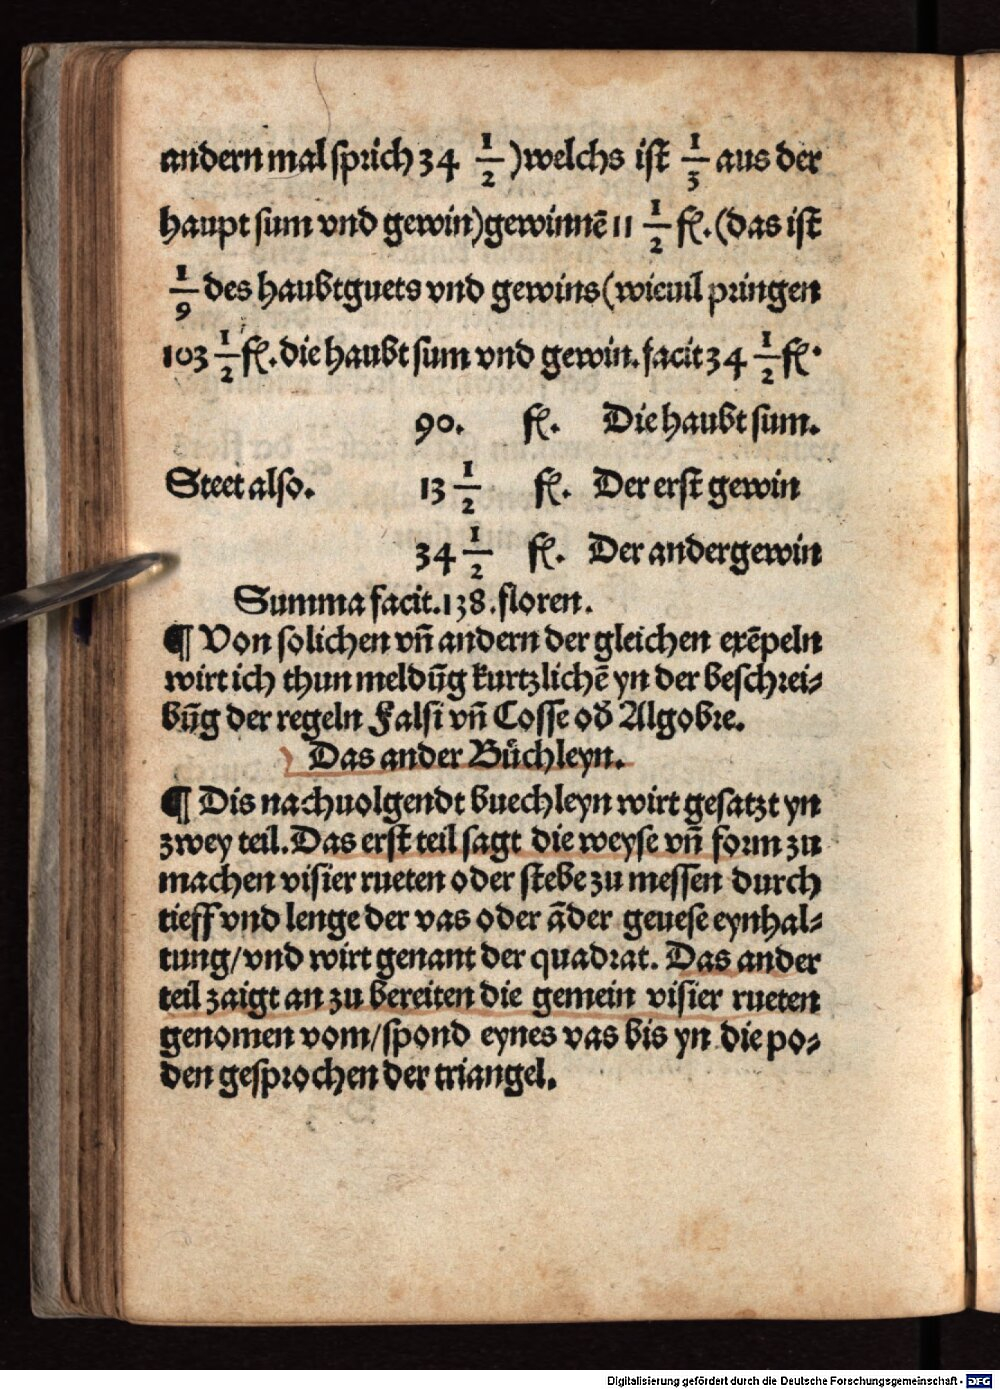 andern mal sprich 34 1/2) welchs ist 1/3 aus der
haupt sum vnd gewin) gewinnē 11 1/2 fl. (das ist
1/9 des haubtguets vnd gewins (wieuil pringen
103 1/2 fl. die haubt sum vnd gewin. facit 34 1/2 fl.
90. fl. Die haubt sum.
Steet also. 13 1/2 fl. Der erst gewin
34 1/2 fl. Der ander gewin
Summa facit. 138. floren.
¶ Von solichen vn̄ andern der gleichen exēpeln
wirt ich thun meldūg kurtzlichē yn der beschrei⸗
būg der regeln Falsi vn̄ Cosse od̄ Algobre.
Das ander Bůchleyn.
¶ Dis nachuolgendt buechleyn wirt gesatzt yn
zwey teil. Das erst teil sagt die weyse vn̄ form zu
machen visier rueten oder stebe zu messen durch
tieff vnd lenge der vas oder āder geuese eynhal⸗
tung/ vnd wirt genant der quadrat. Das ander
teil zaigt an zu bereiten die gemein visier rueten
genomen vom/ spond eynes vas bis yn die po⸗
den gesprochen der triangel.
Digitalisierung gefördert durch die Deutsche Forschungsgemeinschaft - DFG